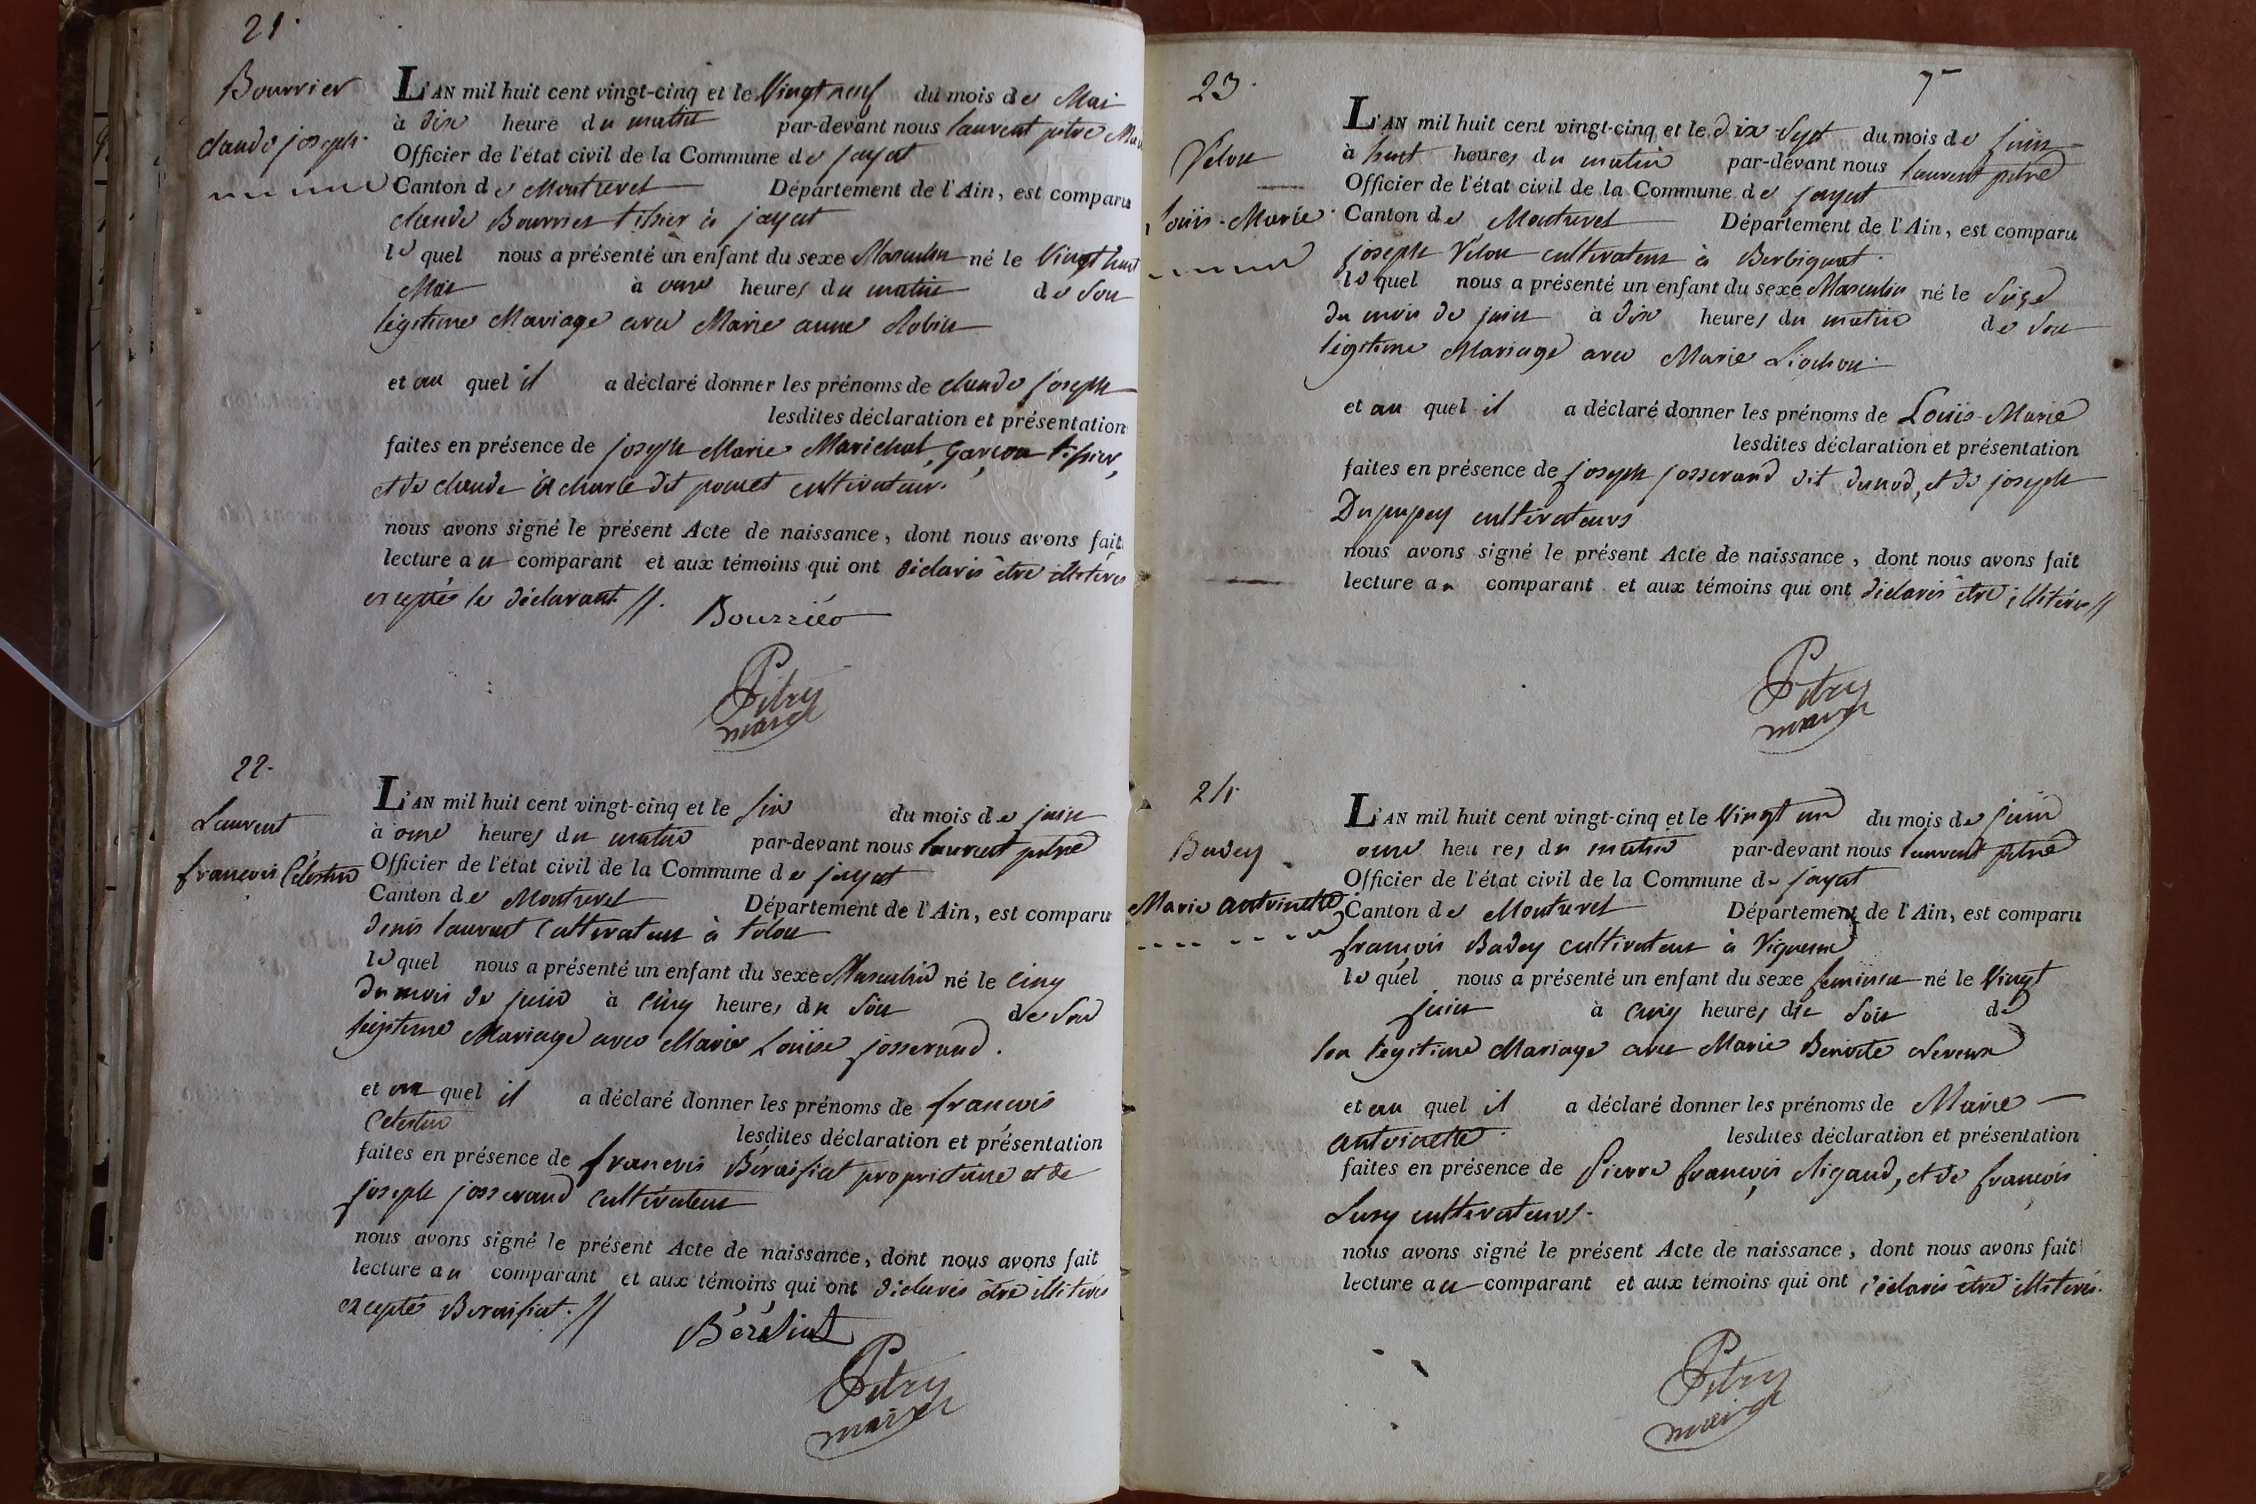 21.
Bourrier
claude joseph.
L'AN mil huit cent vingt-cinq et le Vingt neuf du mois de Mai
à dix heure du matin par-devant nous laurent pitre
Officier de l'état civil de la Commune de jayat
Canton de Montrevel Département de l'Ain, est comparu
claude Bourrier tissier à jayat
le quel nous a présenté un enfant du sexe Masculin né le Vingt huit
Mai à onze heures du matin de Son
légitime Mariage avec Marie anne Robin
et au quel il a déclaré donner les prénoms de claude joseph
lesdites déclaration et présentation
faites en présence de joseph Marie Maréchal, garçon tissier,
et de claude dit pouet cultivateur.
nous avons signé le présent Acte de naissance, dont nous avons fait
lecture au comparant et aux témoins qui ont déclarés être illitérés
exceptés le déclarant. //.
Bourrier
Pitre
maire
22.
Laurent
françois Célestin
L'AN mil huit cent vingt-cinq et le six du mois de juin
à onze heures du matin par-devant nous laurent pitre
Officier de l'état civil de la Commune de jayat
Canton de Montrevel Département de l'Ain, est comparu
denis laurent Cultivateur à tolou
le quel nous a présenté un enfant du sexe Masculin né le cinq
du mois de juin à cinq heures du Soir de Son
légitime Mariage avec Marie Louise josserand.
et au quel il a déclaré donner les prénoms de françois
Celestin
lesdites déclaration et présentation
faites en présence de françois Béraisiat propriétaire et de
joseph josserand Cultivateur
nous avons signé le présent Acte de naissance, dont nous avons fait
lecture au comparant et aux témoins qui ont déclarés être illitérés
excepté Beraisiat. //
Bérésiat
Pitre
maire
7
23.
Velon
Louis-Marie.
L'AN mil huit cent vingt-cinq et le dix Sept du mois de juin
à huit heures du matin par-devant nous laurent pitre
Officier de l'état civil de la Commune de jayat
Canton de Montrevel Département de l'Ain, est comparu
joseph Vélon cultivateur à
le quel nous a présenté un enfant du sexe Masculin né le Seize
du mois de juin à dix heures du matin de Son
légitime Mariage avec Marie Liochon.
et au quel il a déclaré donner les prénoms de Louis-Marie
lesdites déclaration et présentation
faites en présence de joseph josserand dit dunod, et de joseph
Dupupey cultivateurs
nous avons signé le présent Acte de naissance, dont nous avons fait
lecture au comparant et aux témoins qui ont déclarés être illitérés //
Pitre
maire
24.
Badey
Marie antoinette
L'AN mil huit cent vingt-cinq et le Vingt un du mois de juin
onze heures du matin par-devant nous laurent pitre
Officier de l'état civil de la Commune de jayat
Canton de Montrevel Département de l'Ain, est comparu
françois Badey cultivateur à
le quel nous a présenté un enfant du sexe feminin né le Vingt
juin à cinq heures du Soir de
son légitime Mariage avec Marie Benoite
et au quel il a déclaré donner les prénoms de Marie
antoinette.
lesdites déclaration et présentation
faites en présence de Pierre françois Rigaud, et de françois
Sury cultivateurs.
nous avons signé le présent Acte de naissance, dont nous avons fait
lecture au comparant et aux témoins qui ont déclarés être illitérés.
Pitre
maire